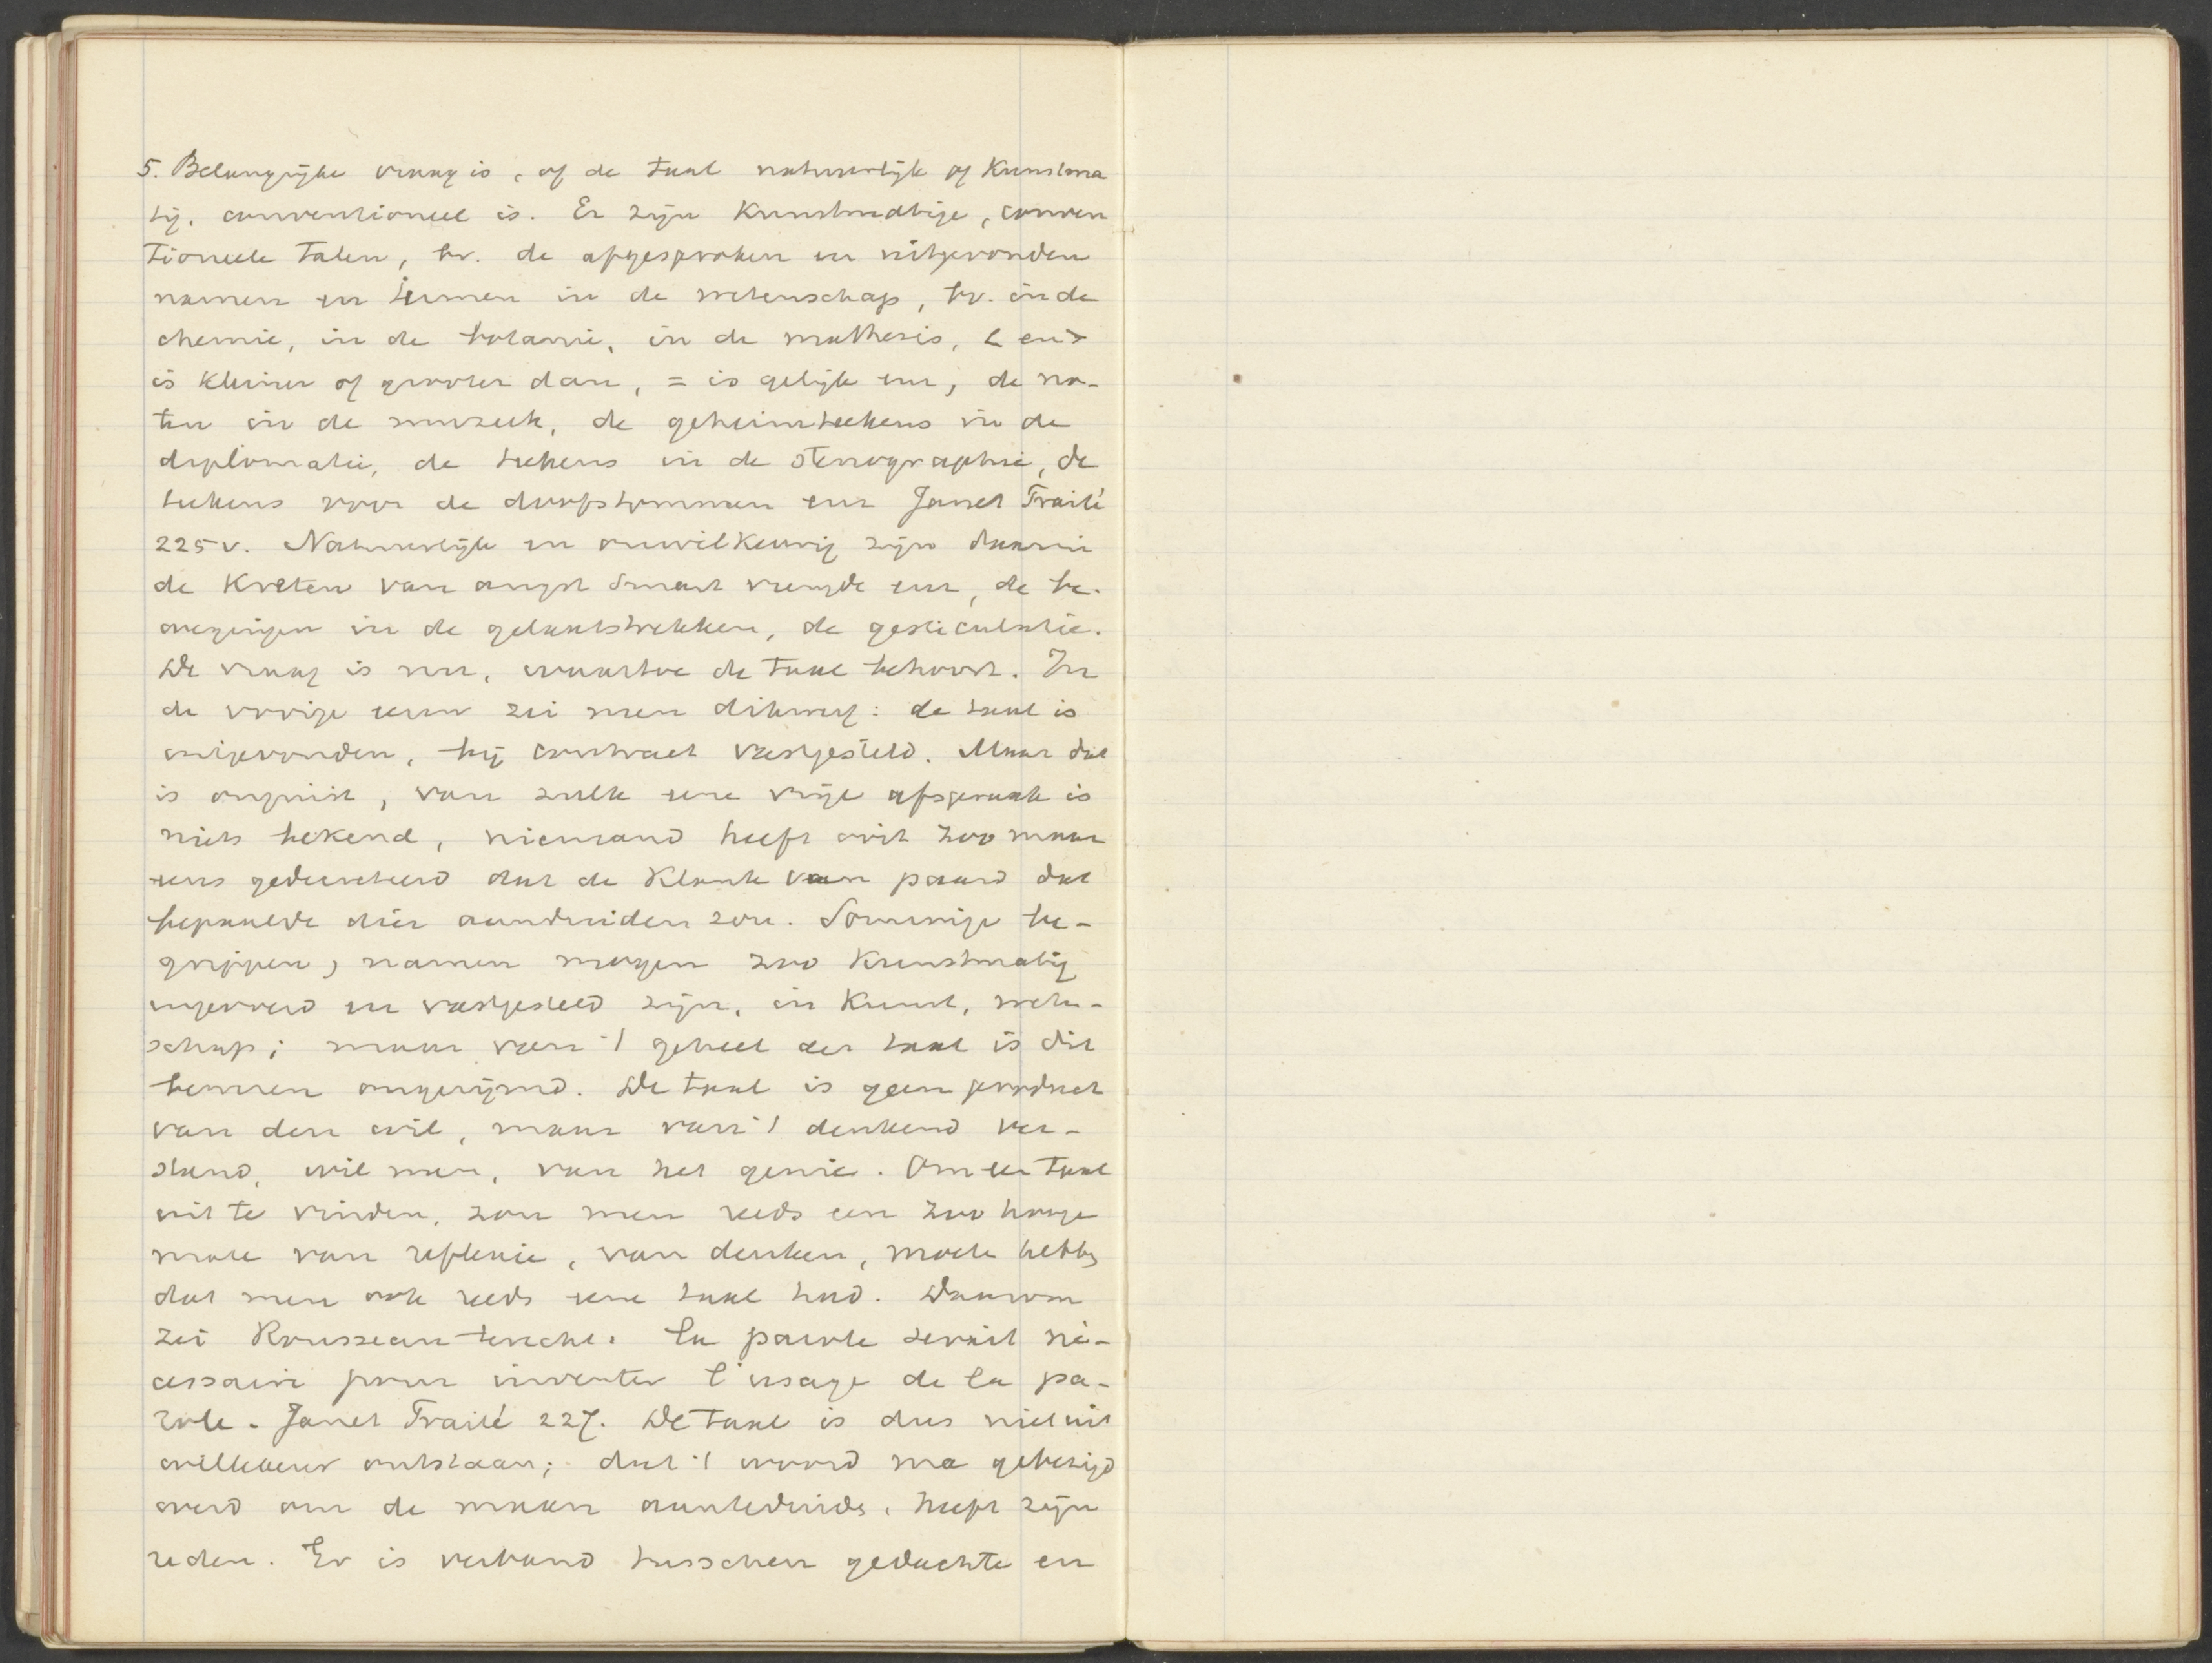 5. Belangrijke vraag is, of de taal natuurlijk of kunstma
tig, conventioneel is. Er zijn kunstmatige, conven
tioneele talen, bv. de afgesproken en uitgevonden
namen en termen in de wetenschap, bv. in de
chemie, in de botanie, in de mathesis, < en >
is kleiner of grooter dan, = is gelijk enz, de no-
ten in de muziek, de geheimteekens in de
diplomatie, de teekens in de stenographie, de
teekens voor de doofstommen enz Janet Traité
225v. Natuurlijk en onwillkeurig zijn daarin
de kreten van angst smart vreugde enz, de be-
wegingen in de gelaatstrekken, de gesticulatie.
De vraag is nu, waartoe de taal behoort. In
de vorige eeuw zei men dikwerf: de taal is
uitgevonden, bij contract vastgesteld. Maar dat
is onjuist, van zulk eene vrije afspraak is
niets bekend, niemand heeft ooit zoo maar
eens gedecreteerd dat de klank van paard dat
bepaalde dier aanduiden zou. Sommige be-
grippen, namen mogen zoo kunstmatig
ingevoerd en vastgesteld zijn, in kunst, weten-
schap; maar van 't geheel der taal is dit
beweren ongerijmd. De taal is geen product
van den wil, maar van 't denkend ver-
stand, wil men, van het genie. Om de taal
uit te vinden, zou men reeds een zoo hooge
mate van reflexie, van denken, moete hebb
dat men ook reeds eene taal had. Daarom
zei Rousseau terecht: la parole serait né-
cessaire pour inventer l'usage de la pa-
role. Janet Traité 227. De taal is dus niet uit
willekeur ontstaan; dat 't woord ma gebezigd
werd om de maan aanteduide, heeft zijn
reden. Er is verband tusschen gedachte en